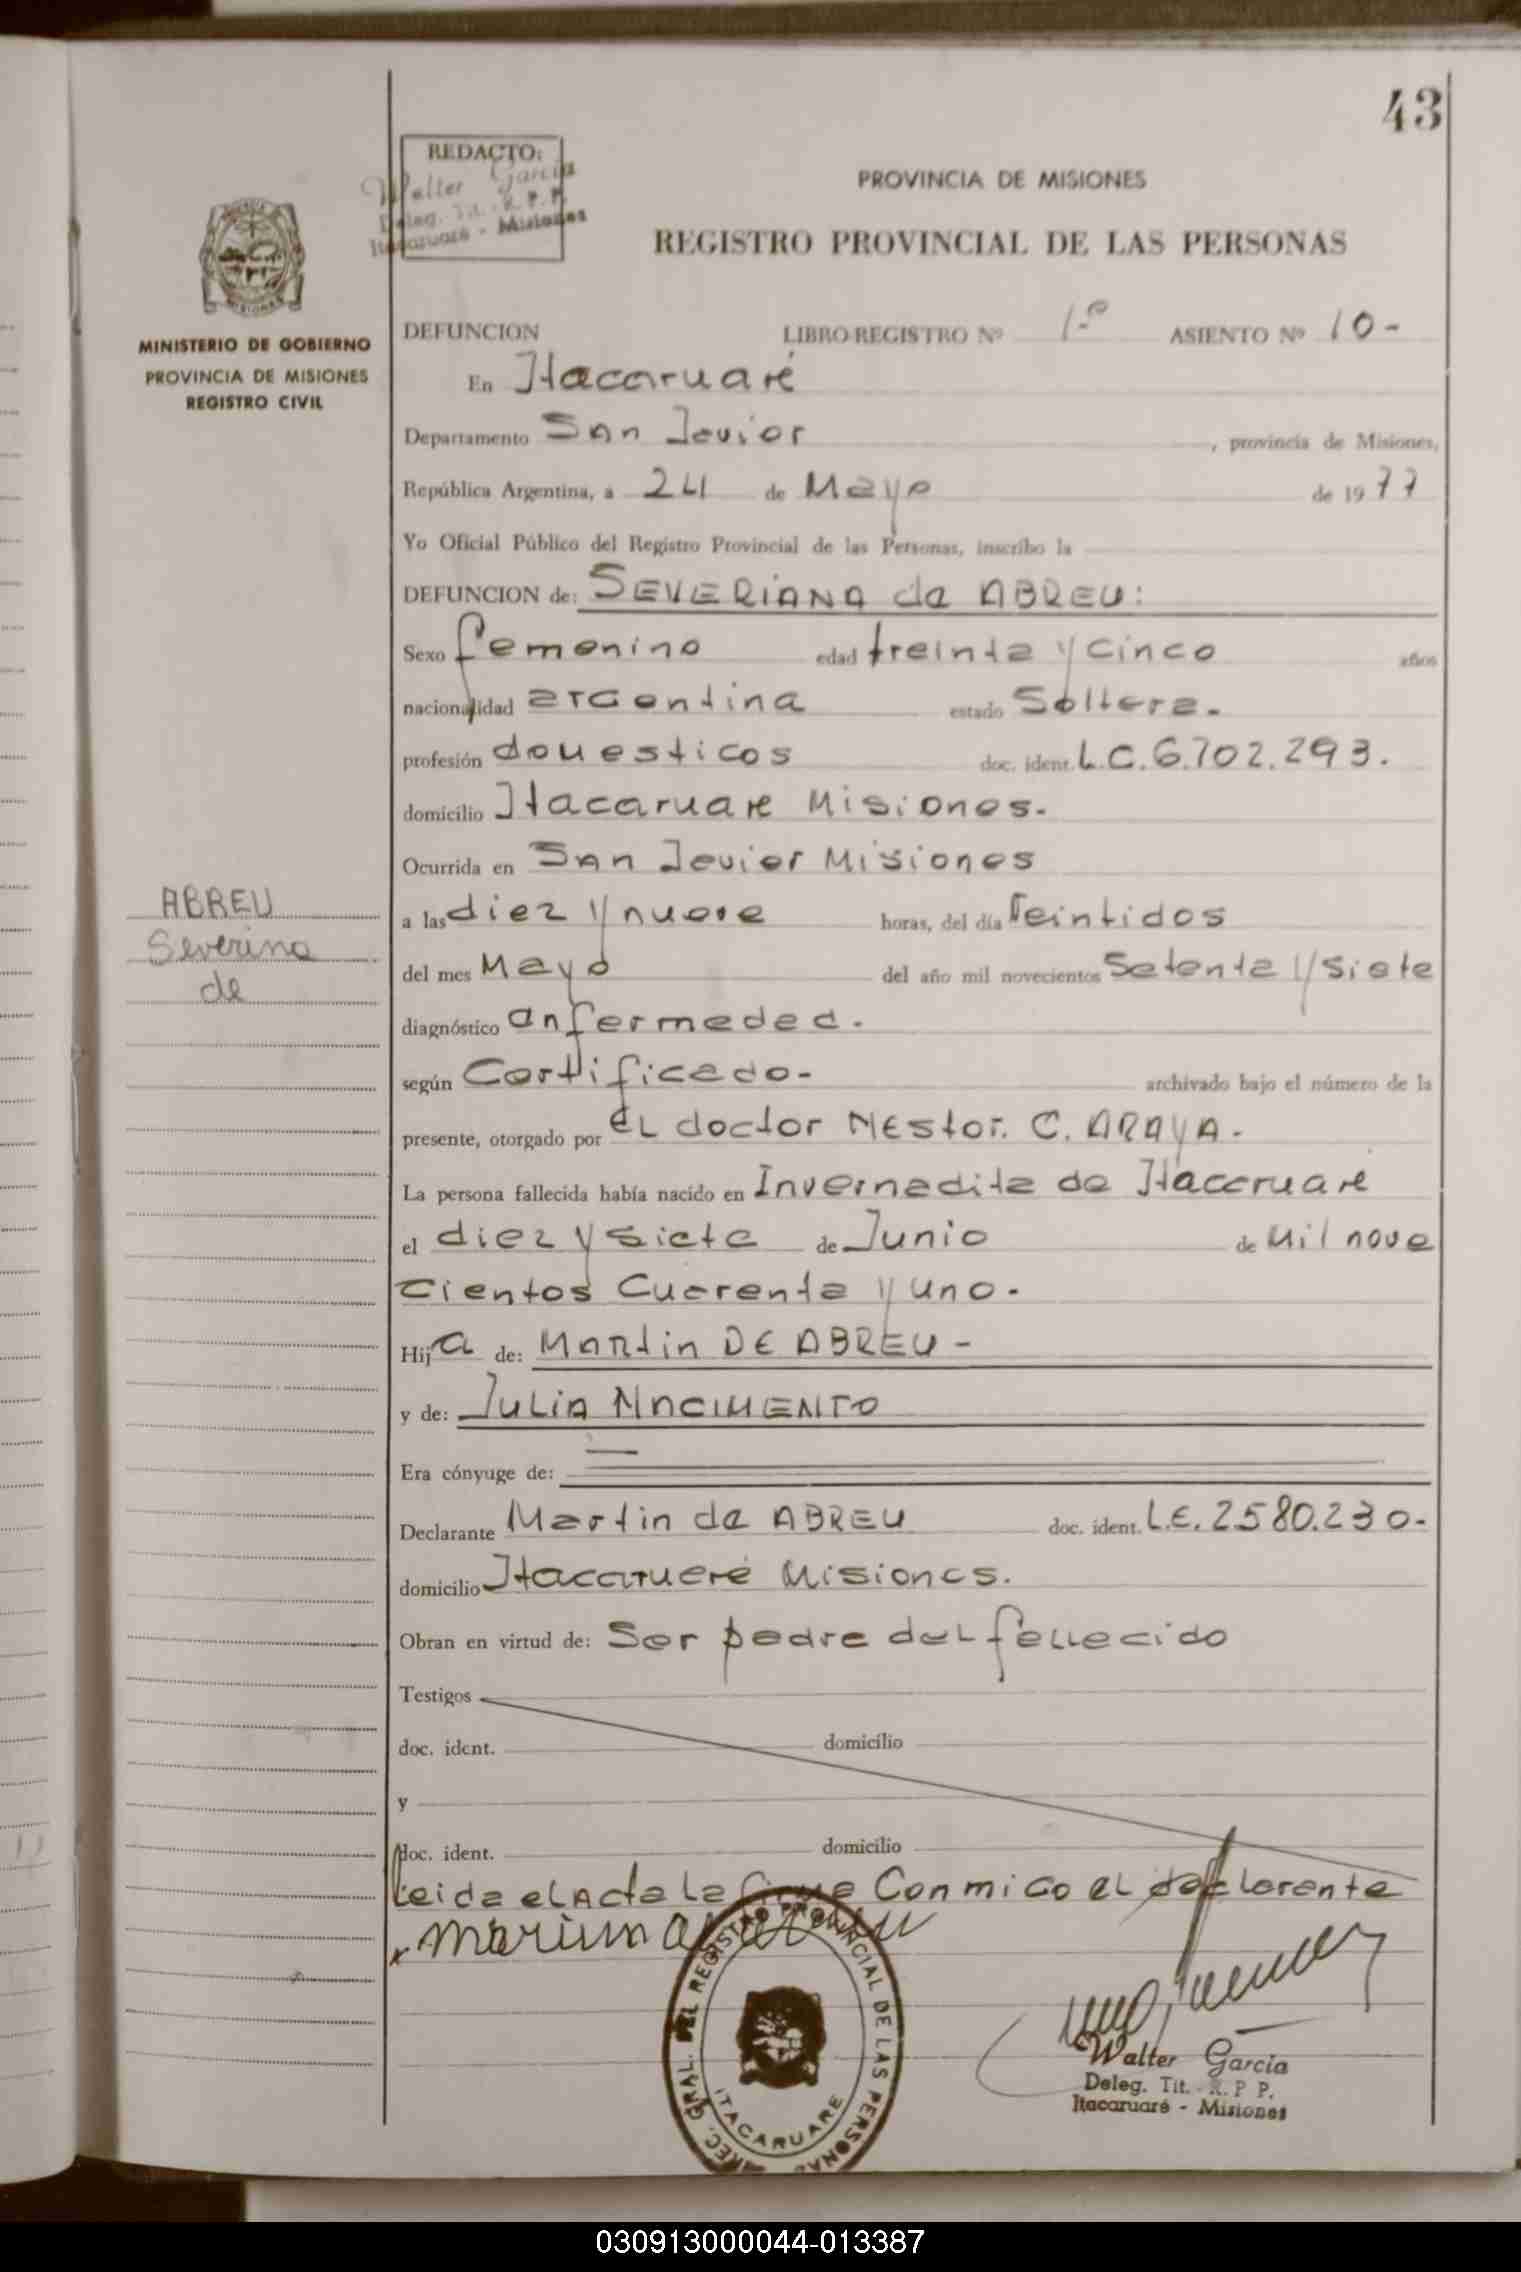 43
REDACTO:
Walter García
Deleg. Tit. R. P. P.
Itacaruaré - Misiones
PROVINCIA DE MISIONES
REGISTRO PROVINCIAL DE LAS PERSONAS
MINISTERIO DE GOBIERNO
PROVINCIA DE MISIONES
REGISTRO CIVIL
DEFUNCION LIBRO REGISTRO Nº 1-º ASIENTO Nº 10-
En Itacaruaré
Departamento San Javier, provincia de Misiones,
República Argentina, a 24 de Mayo de 1977
Yo Oficial Público del Registro Provincial de las Personas, inscribo la
DEFUNCION de: SEVERIANA de ABREU:
Sexo femenino edad treinta y cinco años
nacionalidad argentina estado Soltera.
profesión domesticos doc. ident. L.C.6.702.293.
domicilio Itacaruare Misiones.
Ocurrida en San Javier Misiones
ABREU
Severina
de
a las diez y nueve horas, del día Veintidos
del mes Mayo del año mil novecientos Setenta y Siete
diagnóstico enfermedad.
según Certificado- archivado bajo el número de la
presente, otorgado por el doctor Nestor. C. ARAYA.
La persona fallecida había nacido en Invernadita de Itacaruaré
el diez y siete de Junio de Mil nove
cientos Cuarenta y uno.
Hija de: Martin DE ABREU -
y de: Julia NACIMENTO
Era cónyuge de: —
Declarante Martin de ABREU doc. ident. L.E. 2.580.230-
domicilio Itacaruaré Misiones.
Obran en virtud de: Ser padre del fallecido
Testigos
doc. ident. domicilio
y
doc. ident. domicilio
Leida el Acta la firma Conmigo el declarente
Walter García
Deleg. Tit. R. P P.
Itacaruaré - Misiones
DEL REGISTRO PROVINCIAL DE LAS PERSONAS
ITACARUARE
030913000044-013387